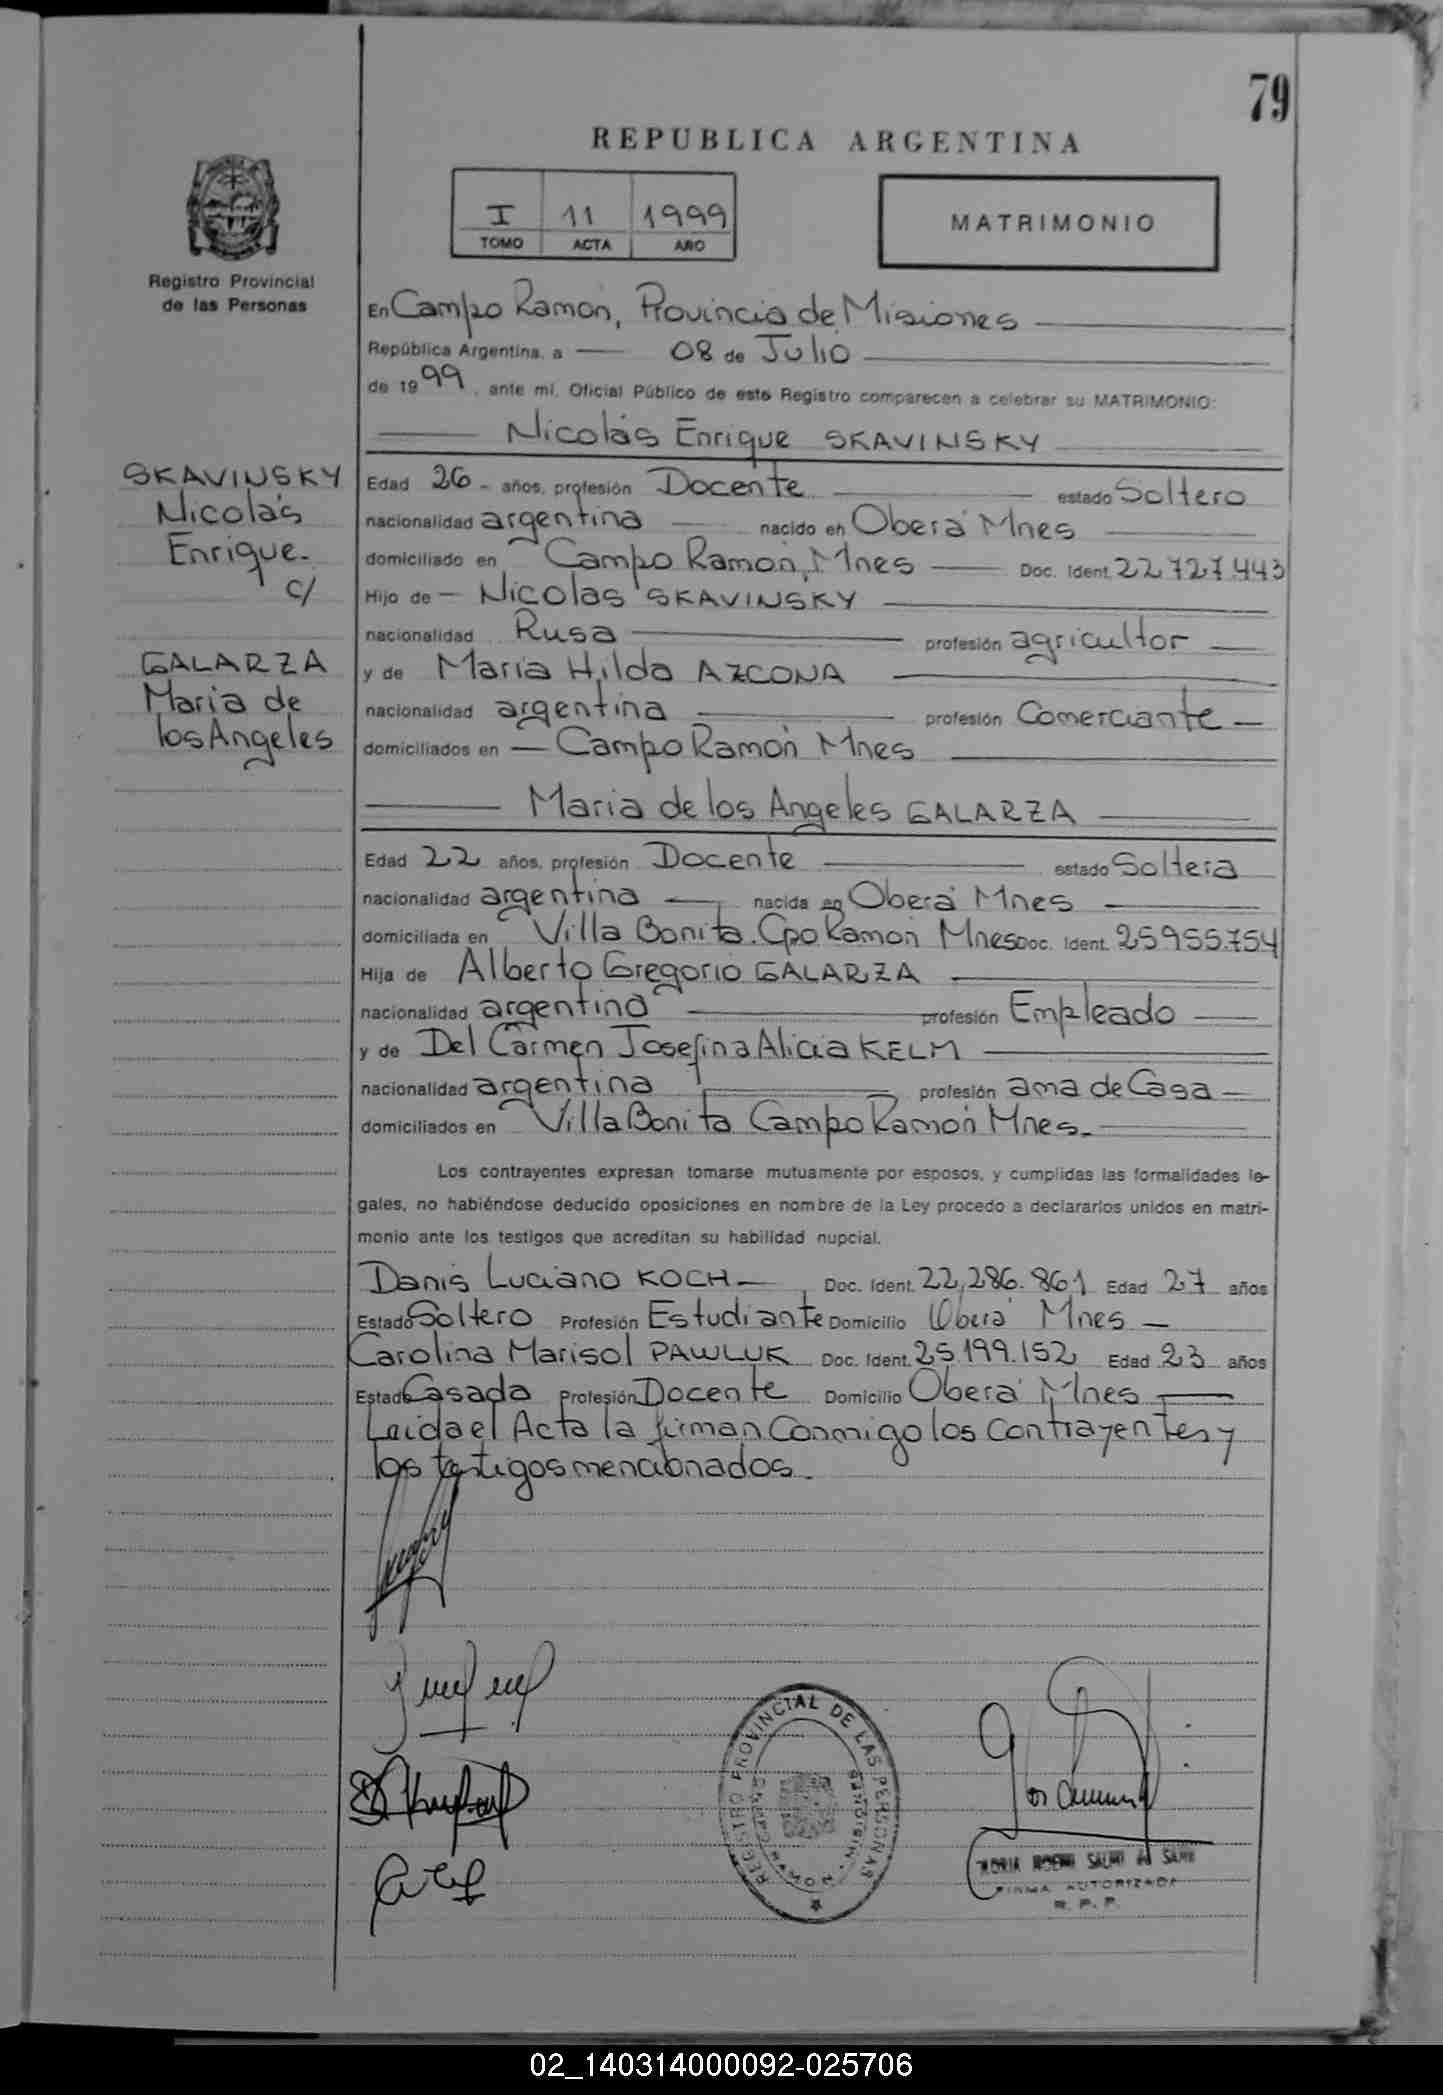 79
REPUBLICA ARGENTINA
I 11 1999
TOMO ACTA AÑO
MATRIMONIO
Registro Provincial
de las Personas
En Campo Ramón, Provincia de Misiones
República Argentina, a 08 de Julio
de 1999, ante mí, Oficial Público de este Registro comparecen a celebrar su MATRIMONIO:
Nicolás Enrique SKAVINSKY
SKAVINSKY
Nicolás
Enrique.
c/
GALARZA
Maria de
los Angeles
Edad 26 - años, profesión Docente estado Soltero
nacionalidad argentina nacido en Oberá Mnes
domiciliado en Campo Ramón, Mnes Doc. Ident. 22.727.443
Hijo de - Nicolas SKAVINSKY
nacionalidad Rusa profesión agricultor
y de Maria Hilda AZCONA
nacionalidad argentina profesión Comerciante
domiciliados en Campo Ramón Mnes
Maria de los Angeles GALARZA
Edad 22 años, profesión Docente estado Soltera
nacionalidad argentina nacida en Oberá Mnes
domiciliada en Villa Bonita. Cpo Ramón Mnes Doc. Ident. 25955.754
Hija de Alberto Gregorio GALARZA
nacionalidad argentina profesión Empleado
y de Del Carmen Josefina Alicia KELM
nacionalidad argentina profesión ama de Casa
domiciliados en Villa Bonita Campo Ramón Mnes.
Los contrayentes expresan tomarse mutuamente por esposos, y cumplidas las formalidades le-
gales, no habiéndose deducido oposiciones en nombre de la Ley procedo a declararlos unidos en matri-
monio ante los testigos que acreditan su habilidad nupcial.
Danis Luciano KOCH Doc. Ident. 22,286.861 Edad 27 años
Estado Soltero Profesión Estudiante Domicilio Oberá Mnes
Carolina Marisol PAWLUK Doc. Ident. 25199.152 Edad 23 años
Estado Casada Profesión Docente Domicilio Oberá Mnes
Leida el Acta la firman Conmigo los contrayentes y
los testigos mencionados.
REGISTRO PROVINCIAL DE LAS PERSONAS
CAMPO RAMON - MISIONES
FIRMA AUTORIZADA
R. P. P.
02_140314000092-025706